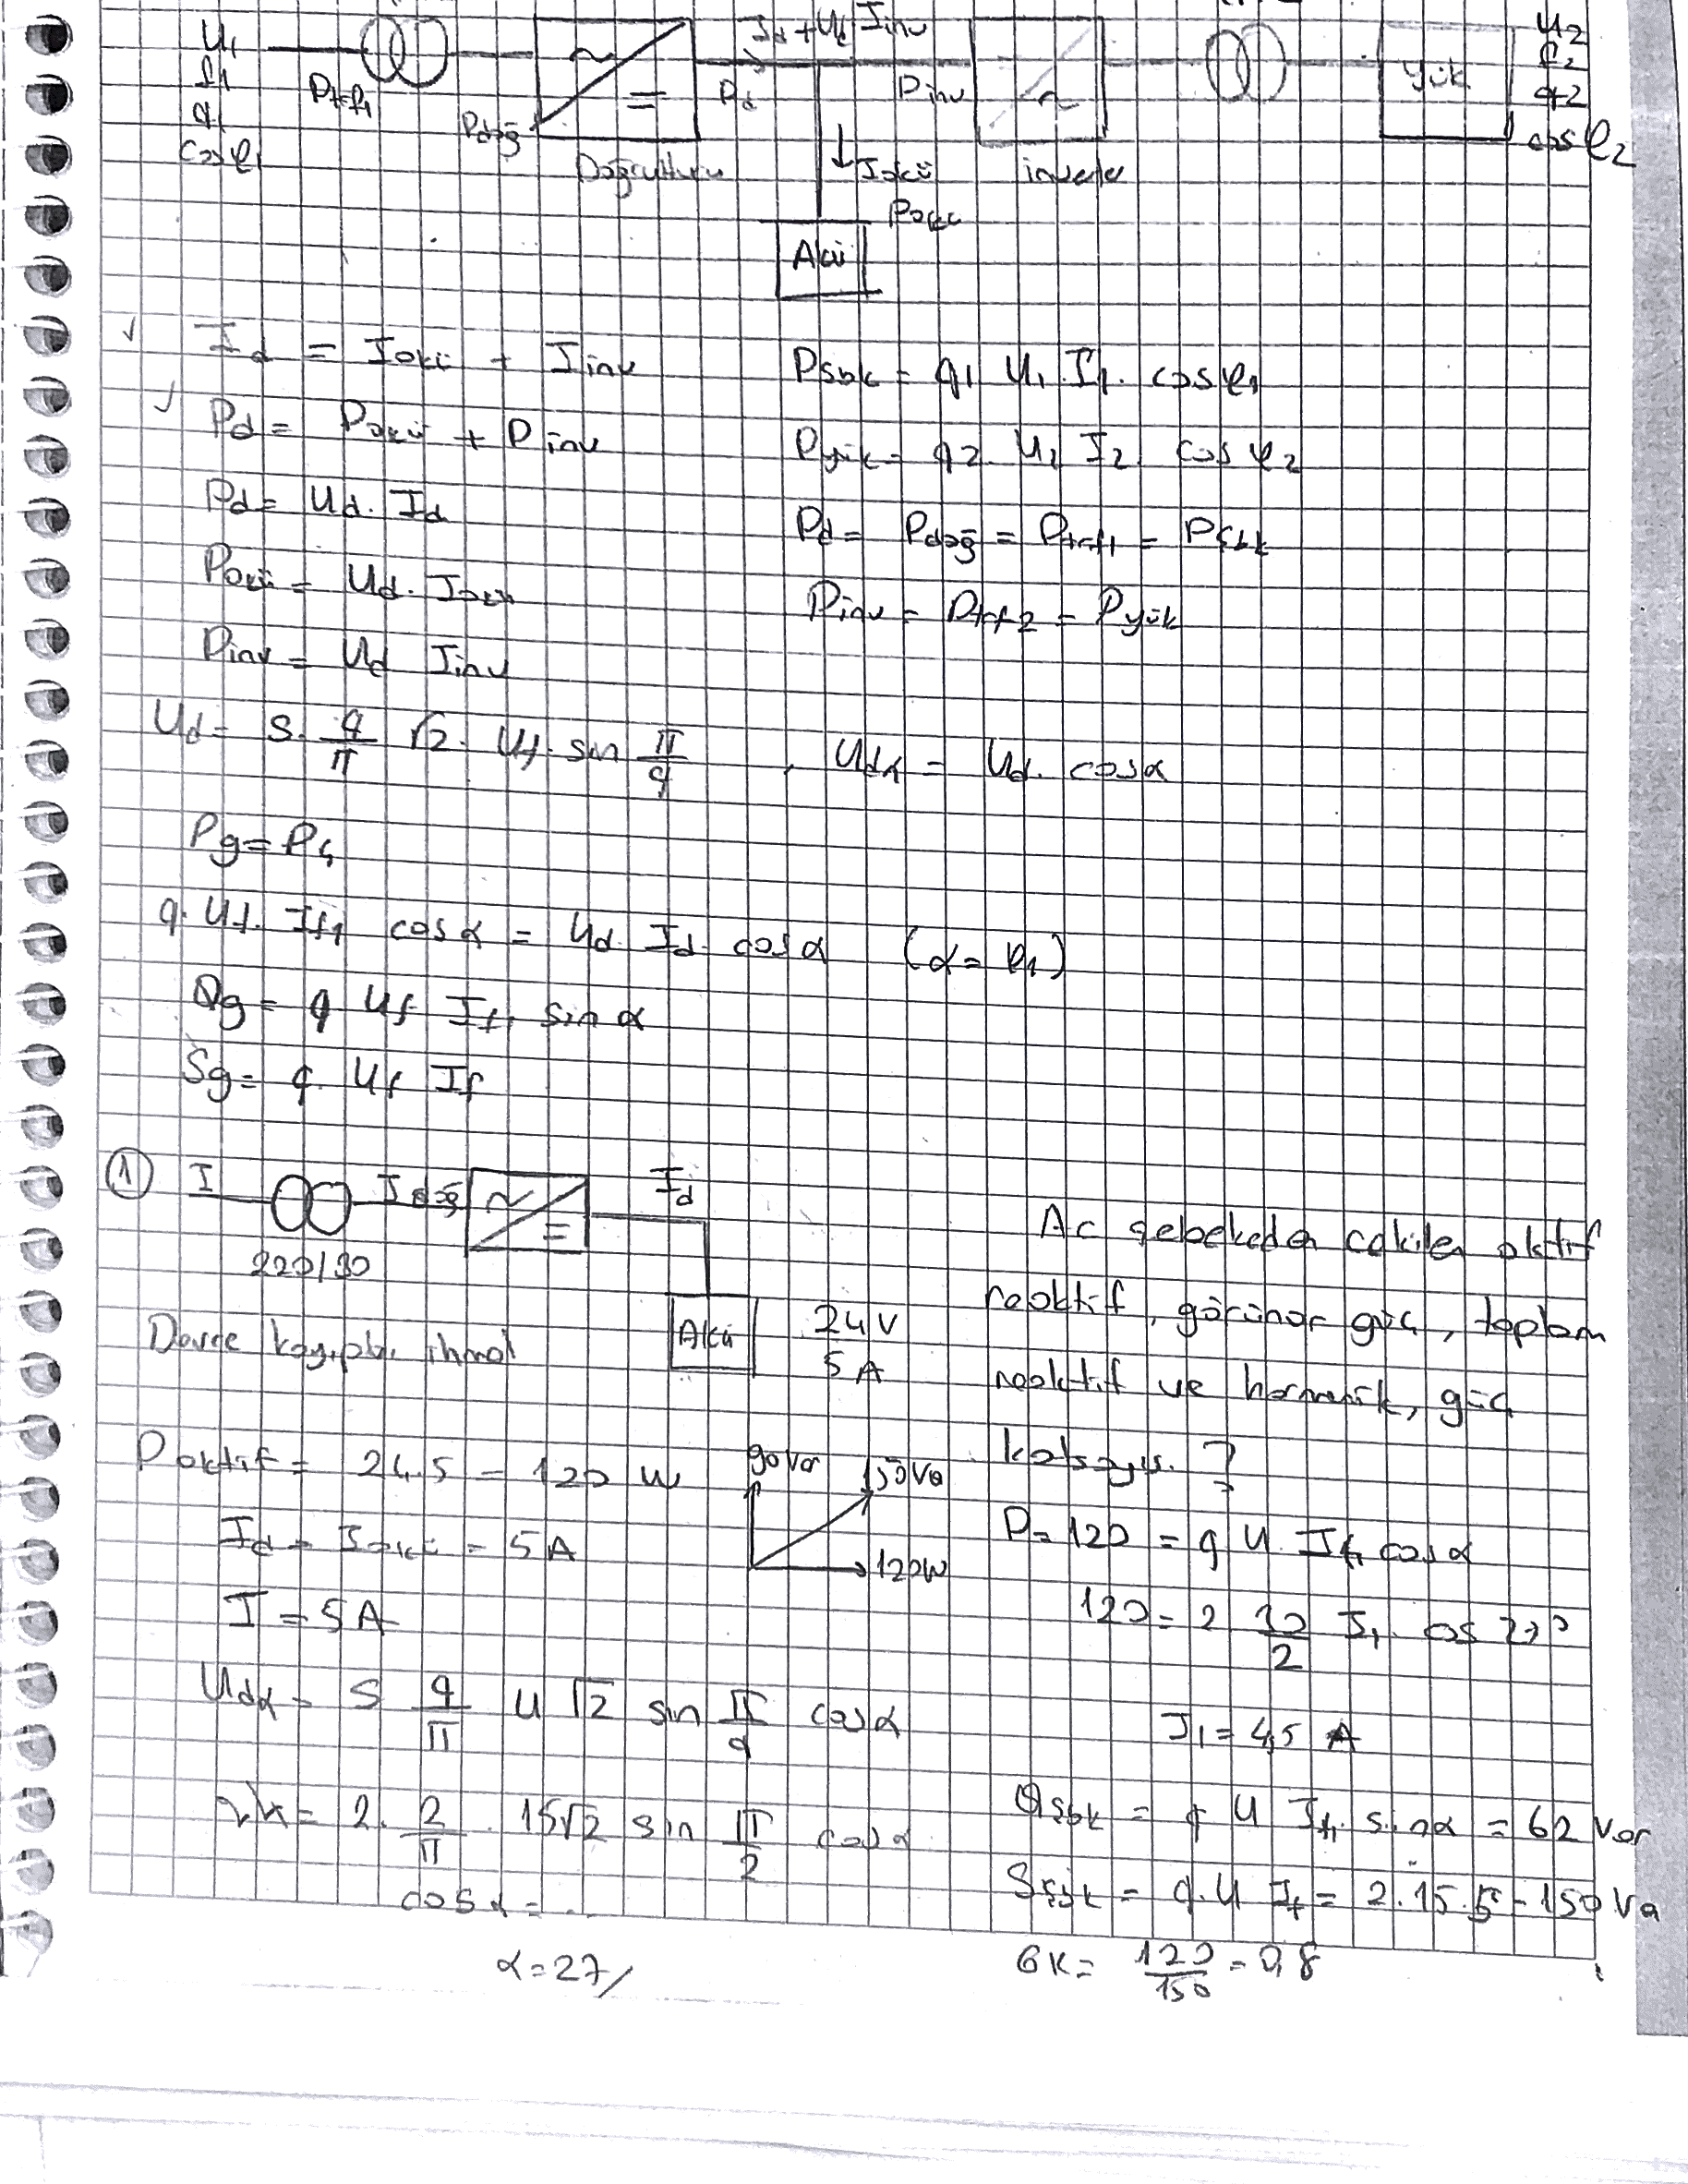 U1
f1
q1
cosφ1
Ptrf1
Pdoğ
Doğrultucu
Id + Ud Iinv
Pd
Pinv
Iakü
Pakü
Akü
inverter
Yük
U2
f2
q2
cosφ2
✓ Id = Iakü + Iinv
Pşbk = q1 U1 . I1 . cosφ1
✓ Pd = Pakü + Pinv
Pyük = q2 . U2 I2 . cosφ2
Pd = Ud . Id
Pd = Pdoğ = Ptrf1 = Pşbk
Pakü = Ud . Iakü
Pinv = Ptrf2 = Pyük
Pinv = Ud Iinv
Ud = S . q/π √2 . Uf . sin π/q , Udα = Ud . cosα
Pg = Pç
q . Uf . If1 cosα = Ud . Id . cosα (α = φ1)
Qg = q Uf If1 sinα
Sg = q . Uf If
① I Idoğ Id
220/30
Akü 24V
5A
Devre kayıpları ihmal
Ac şebekeden çekilen aktif
reaktif, görünür güç, toplam
reaktif ve harmonik, güç
katsayısı ?
Paktif = 24.5 = 120 W
90 Var 150 Va
120W
Id = Iakü = 5A
I = 5A
Udα = S q/π U √2 sin π/q cosα
24 = 2 . 2/π . 15√2 sin π/2 cosα
cosα = ...
α = 27/
P = 120 = q U . If1 cosα
120 = 2 30/2 I1 . cos 27°
I1 = 4,5 A
Qşbk = q U If1 . sinα = 62 Var
Sşbk = q . U If = 2.15.5 = 150 Va
GK = 120/150 = 0,8